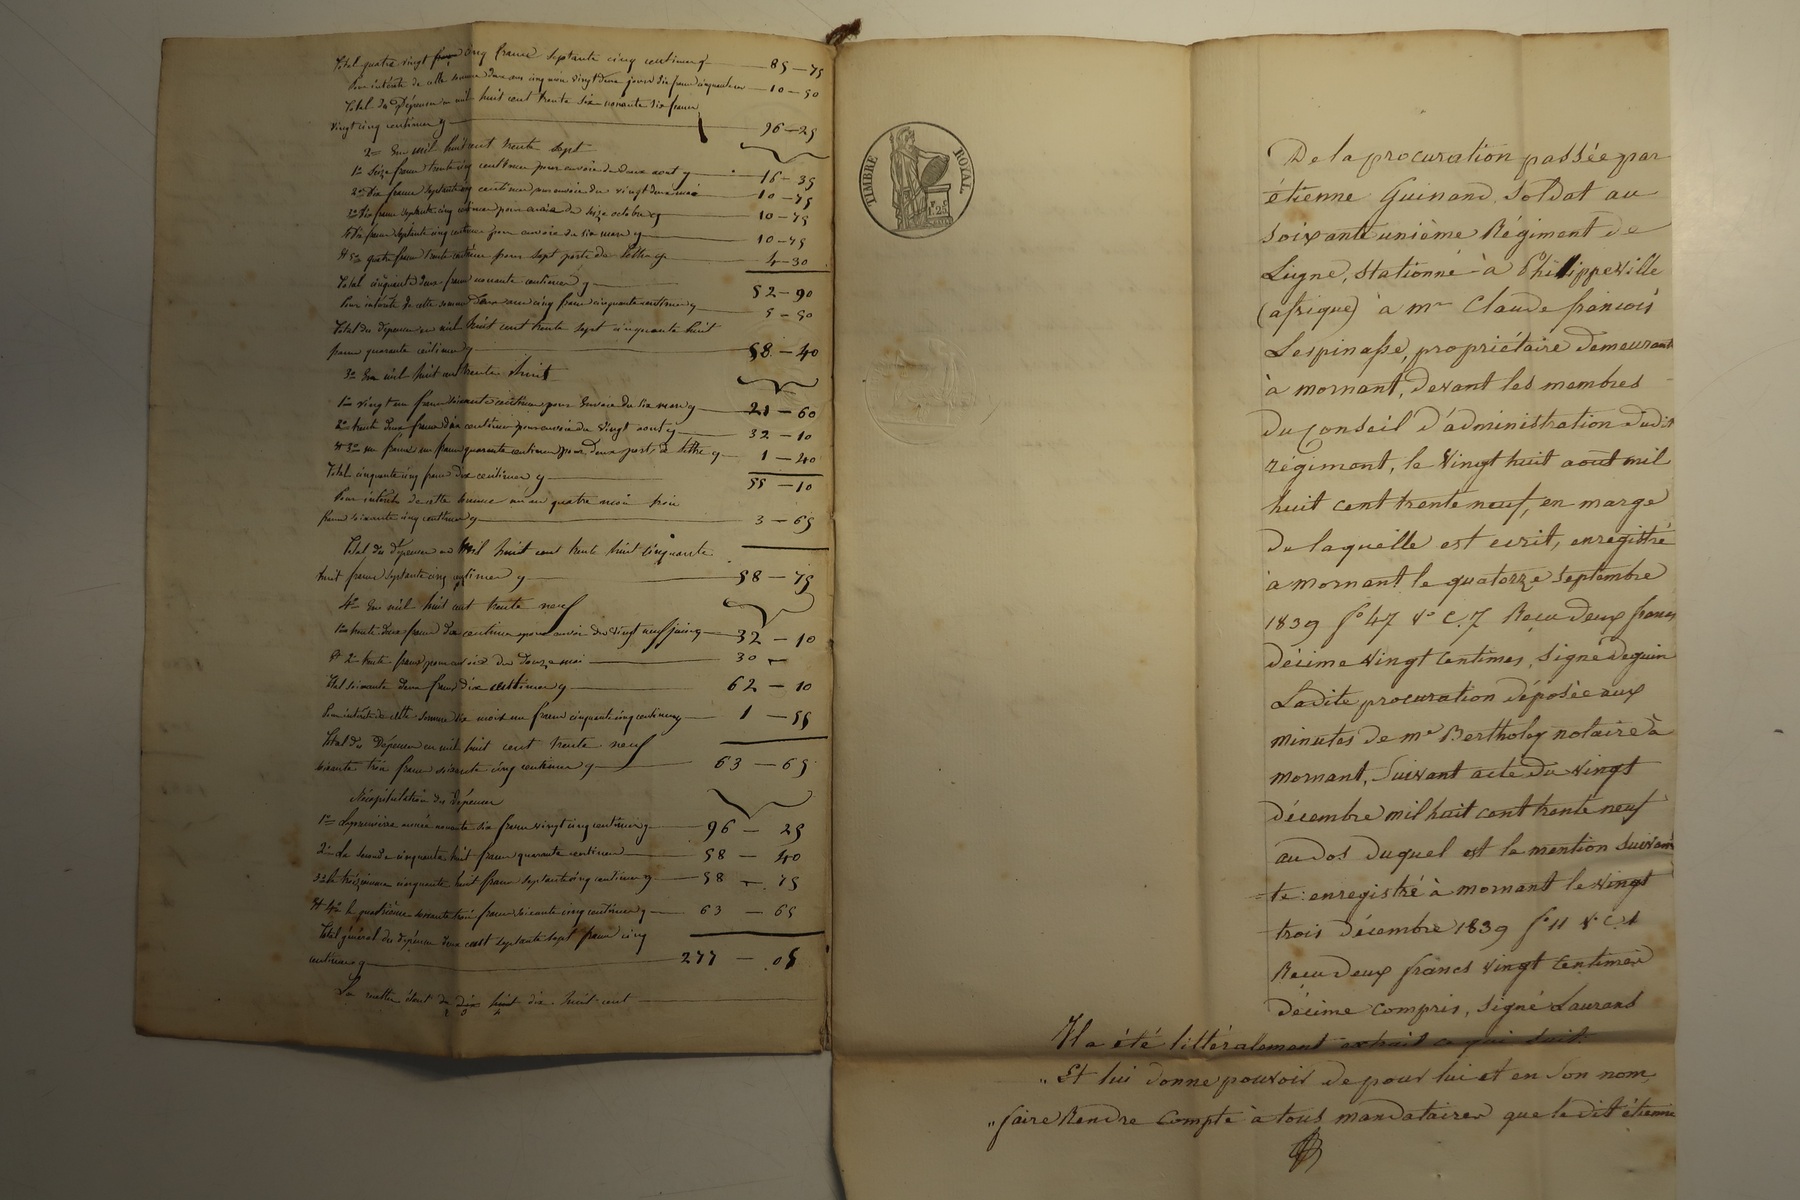 Total quatre vingt cinq francs septante cinq centimes 85 — 75
Pour intérêts de cette somme deux ans cinq mois vingt deux jours dix francs cinquante 10 — 50
Total des Dépenses en mil huit cent trente six nonante six francs
vingt cinq centimes 96 — 25
2° En mil huit cent trente sept
1° Seize francs trente cinq centimes pour envoie de deux aout 16 — 35
2° Dix francs septante cinq centimes pour envoie du vingt deux mai 10 — 75
3° Dix francs septante cinq centimes pour envoie de seize octobre 10 — 75
4° Dix francs septante cinq centimes pour envoie du six mars 10 — 75
et 5° quatre francs trente centimes pour sept ports de lettres 4 — 30
Total cinquante deux francs nonante centimes 52 — 90
Pour intérêts de cette somme deux ans cinq francs cinquante centimes 5 — 50
Total des dépenses en mil huit cent trente sept cinquante huit
francs quarante centimes 58 — 40
3° En mil huit cent trente huit
1° vingt un francs soixante centimes pour envoie du six mars 21 — 60
2° trente deux francs dix centimes pour envoie du vingt aout 32 — 10
et 3° un franc quarante centimes pour deux ports de lettre 1 — 40
Total cinquante cinq francs dix centimes 55 — 10
Pour intérêts de cette somme un an quatre mois trois
francs soixante cinq centimes 3 — 65
Total des dépenses en mil huit cent trente huit cinquante
huit francs septante cinq centimes 58 — 75
4° En mil huit cent trente neuf
1° trente deux francs dix centimes pour envoie du vingt neuf janvier 32 — 10
et 2° trente francs pour envoie du douze mai 30 —
Total soixante deux francs dix centimes 62 — 10
Pour intérêts de cette somme dix mois un franc cinquante cinq centimes 1 — 55
Total des Dépenses en mil huit cent trente neuf
soixante trois francs soixante cinq centimes 63 — 65
Récapitulation des Dépenses
1° La première année nonante six francs vingt cinq centimes 96 — 25
2° La seconde cinquante huit francs quarante centimes 58 — 40
3° la troisième cinquante huit francs septante cinq centimes 58 — 75
et 4° la quatrième soixante trois francs soixante cinq centimes 63 — 65
Total général des dépenses deux cent septante sept francs cinq
centimes 277 — 05
La recette étant de dix huit cent
TIMBRE ROYAL
1F.25
De la procuration passée par
étienne Guinand, Soldat au
Soixante unième Régiment de
Ligne, Stationné à Philippeville
(afrique) à mr Claude françois
Lespinasse, propriétaire demeurant
à mornant, devant les membres
du Conseil d'administration dudit
régiment, le Vingt huit aout mil
huit cent trente neuf, en marge
de laquelle est ecrit, enregistré
à mornant le quatorze Septembre
1839 f° 47 v° C. 7 Reçu deux francs
décime Vingt Centimes, Signé Deguin
Ladite procuration déposée aux
minutes de me Bertholey notaire à
mornant, Suivant acte du vingt
décembre mil huit cent trente neuf
au dos duquel est la mention Suivan
te: enregistré à mornant le vingt
trois décembre 1839 f° 11 v° C. 1
Reçu deux francs vingt Centimes
décime Compris, Signé Laurans
Il a été littéralement extrait ce qui suit.
" Et lui donne pouvoir de pour lui et en Son nom,
" faire Rendre Compte à tous mandataires que ledit étienne